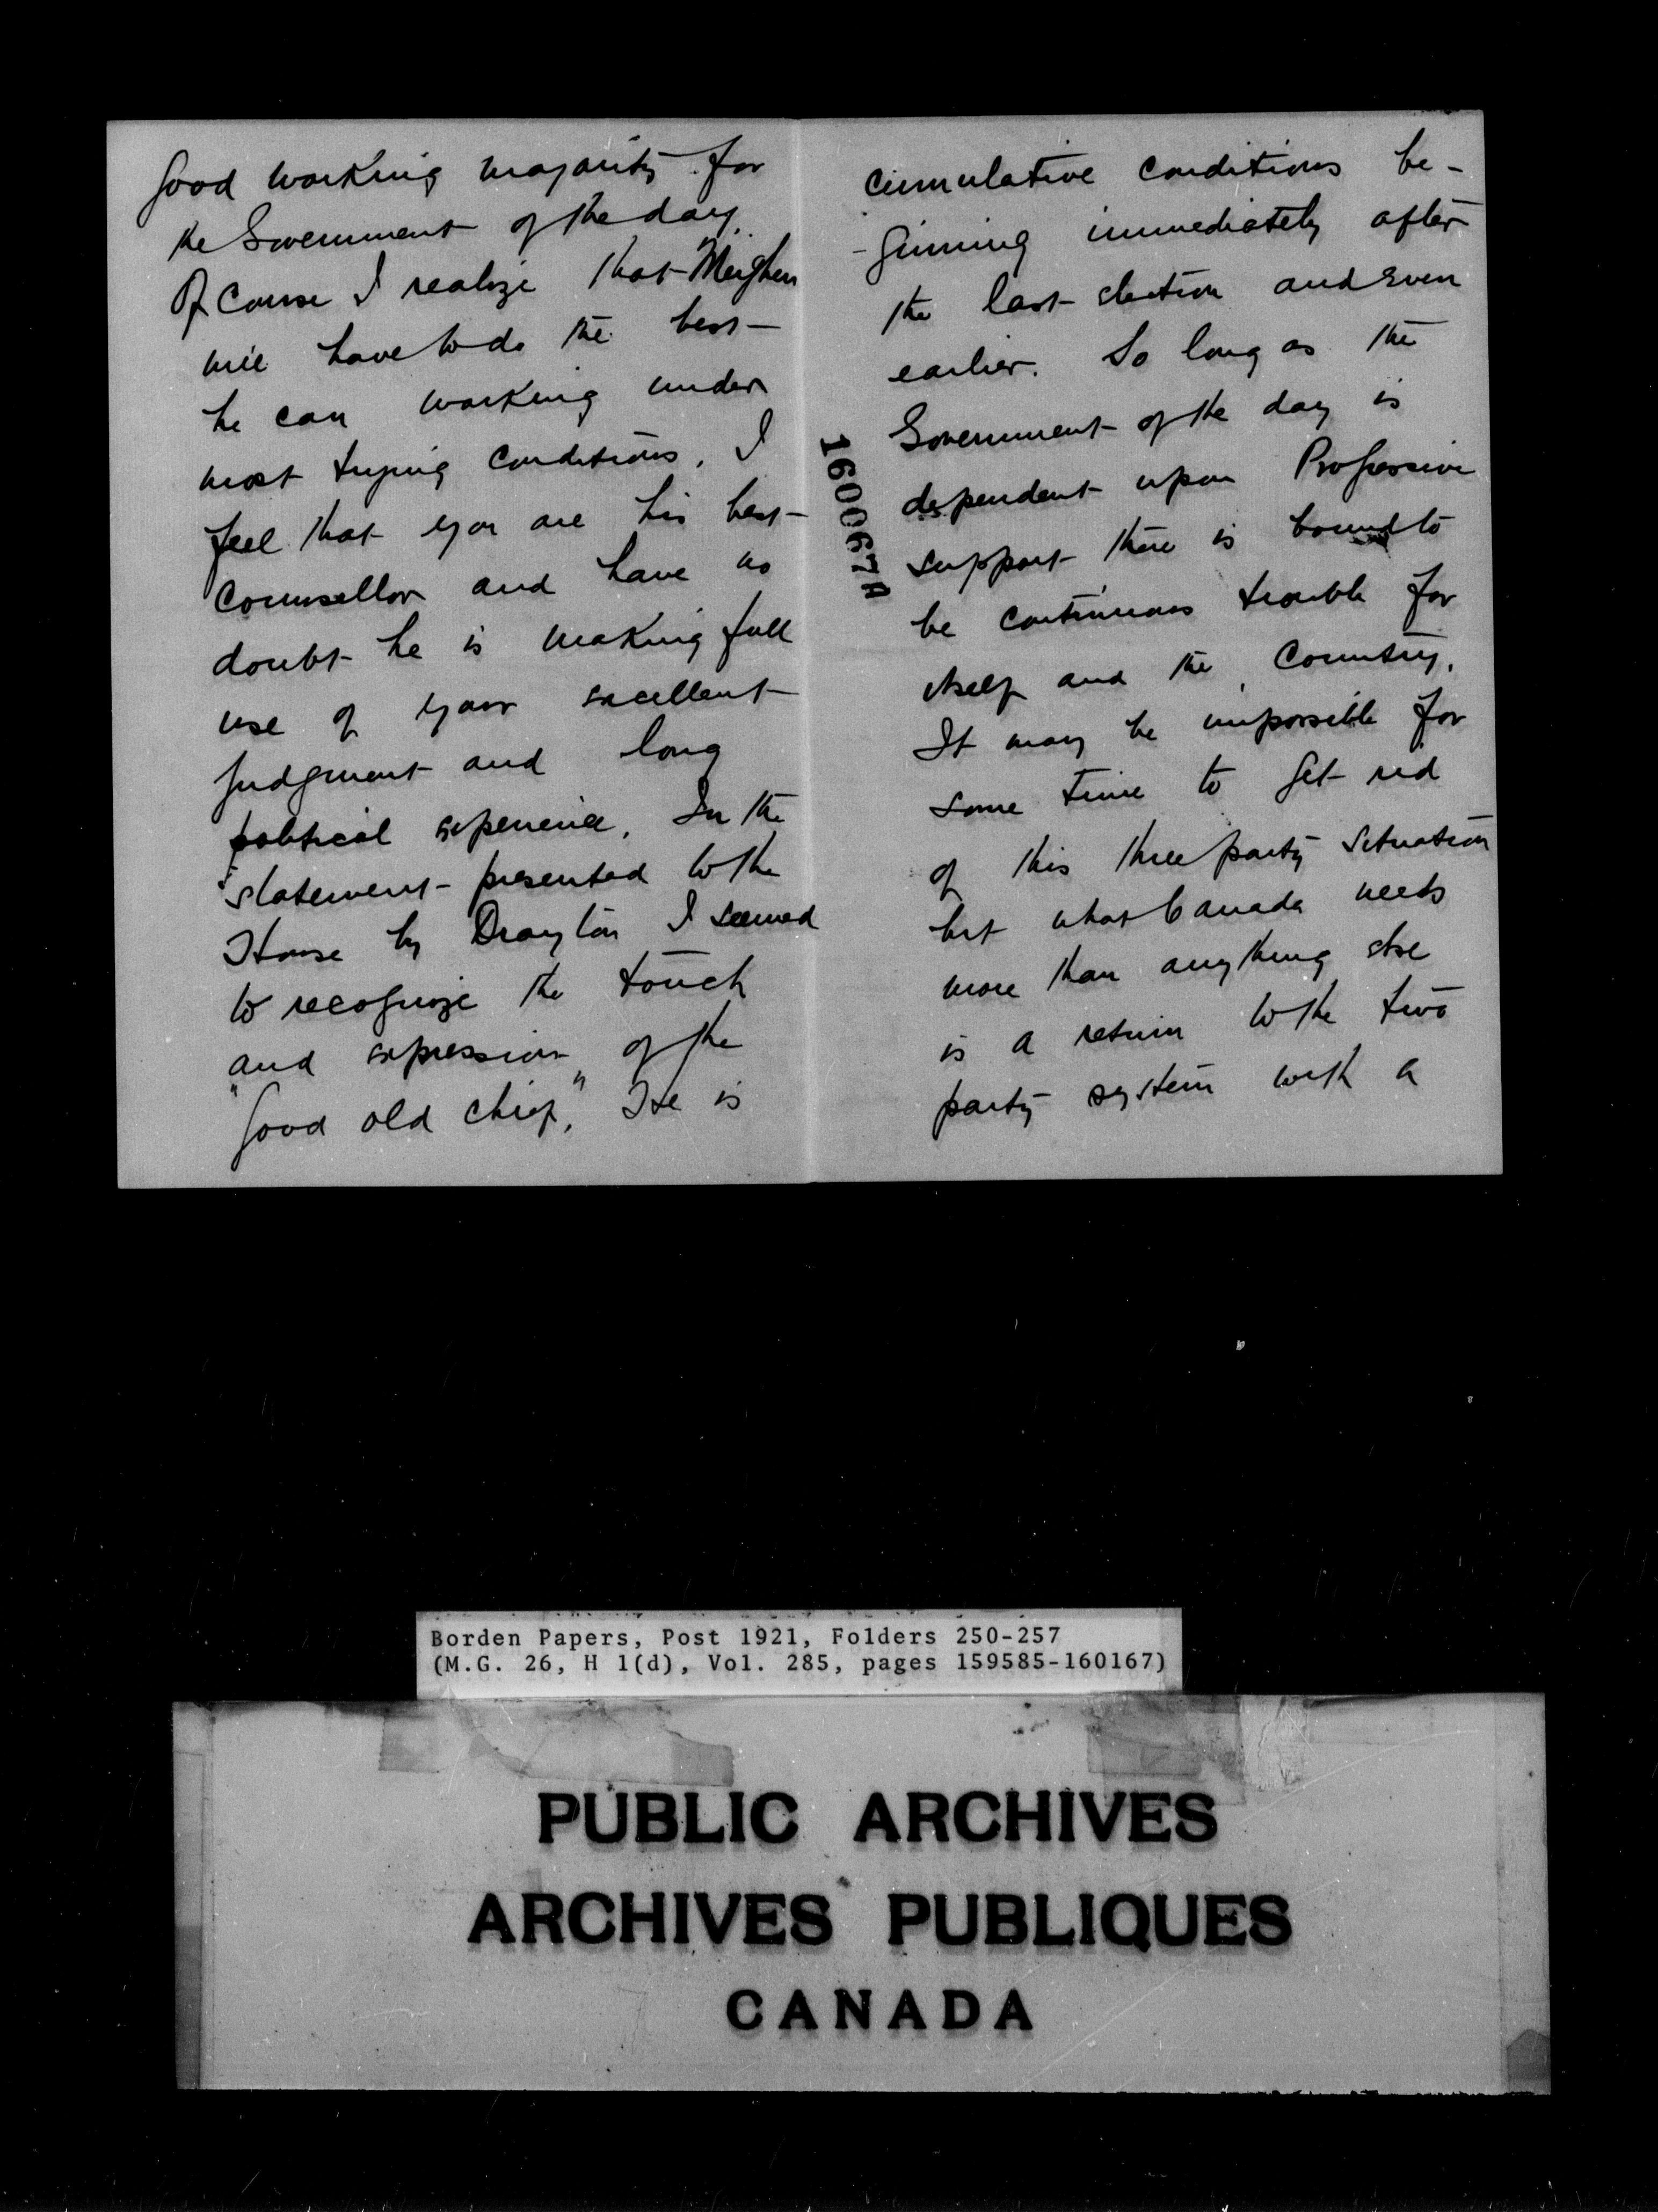 good working majority for
the Government of the day.
Of course I realize that Meighen
will have to do the best
he can working under
most trying conditions. I
feel that you are his best
counsellor and have no
doubt he is making full
use of your excellent
judgment and long
political experience. In the
statement presented to the
House by Drayton I seemed
to recognize the touch
and expression of the
"good old chief." He is
160067A
cumulative conditions be-
-ginning immediately after
the last election and even
earlier. So long as the
Government of the day is
dependent upon Progressive
support there is bound to
be continuous trouble for
itself and the Country.
It may be impossible for
some time to get rid
of this three party situation
but what Canada needs
more than anything else
is a return to the two
party system with a
Borden Papers, Post 1921, Folders 250-257
(M.G. 26, H 1(d), Vol. 285, pages 159585-160167)
PUBLIC ARCHIVES
ARCHIVES PUBLIQUES
CANADA